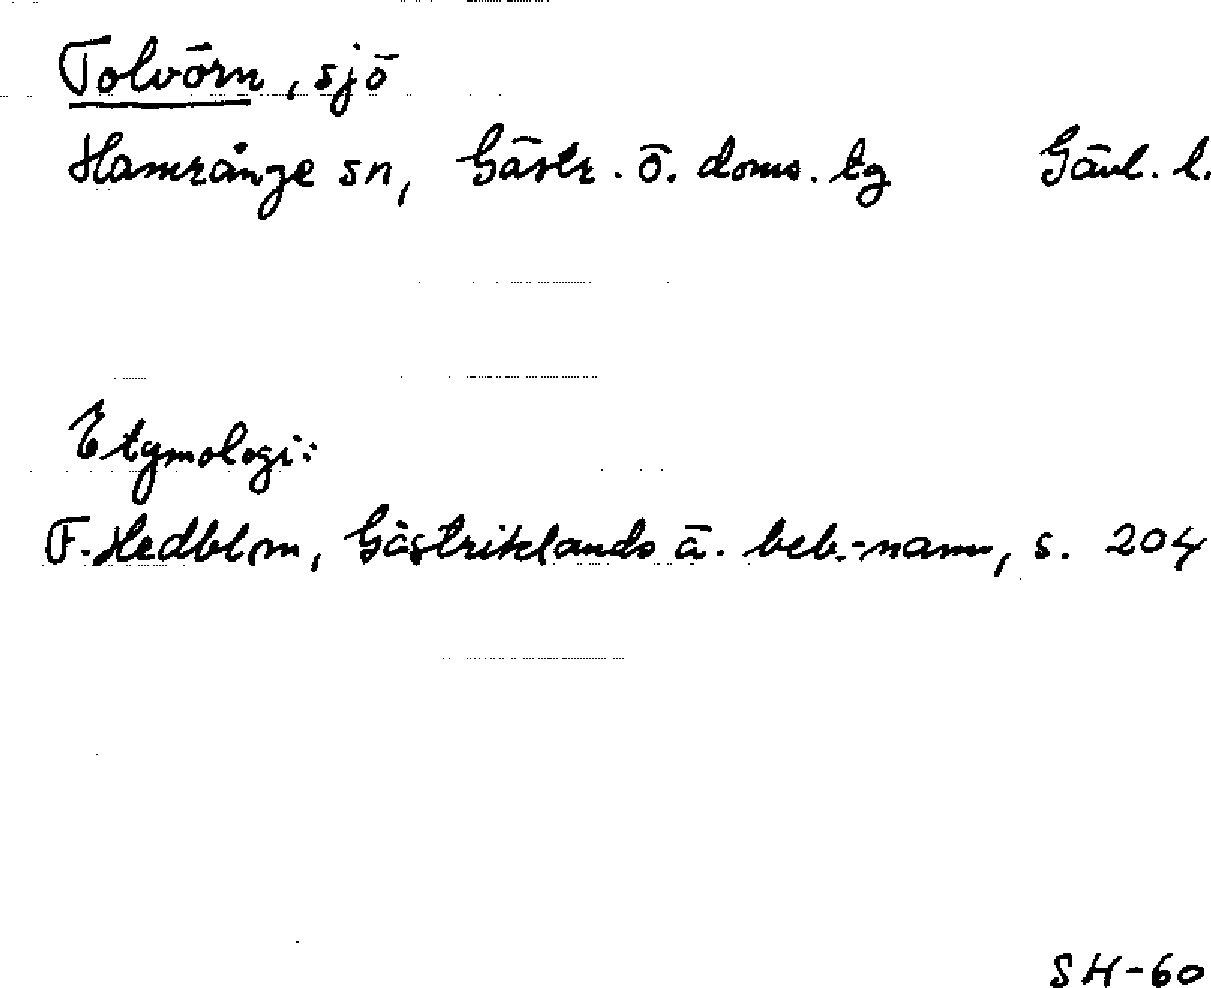 Tolvörn, sjö
Hamrånge sn, Gästr. ö. doms. tg Gävl. l.
Etymologi:
F. Hedblom, Gästriklands ä. beb.-namn, s. 204
SH-60